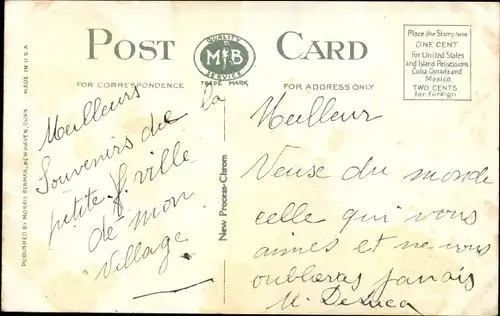 POST CARD
QUALITY
M B
SERVICE
TRADE MARK
FOR CORRESPONDENCE
FOR ADDRESS ONLY
Place the Stamp here
ONE CENT
for United States
and Island Possessions
Cuba, Canada and
Mexico
TWO CENTS
for foreign
MADE IN U.S.A.
PUBLISHED BY MORRIS BERMAN, NEW HAVEN, CONN.
New Process-Chrom
Meilleurs
Souvenirs due la
petite ville
de mon
village
Meilleur
Veuse du monde
celle qui vous
aimes et ne vous
oublieras jamais
M. DeLuca